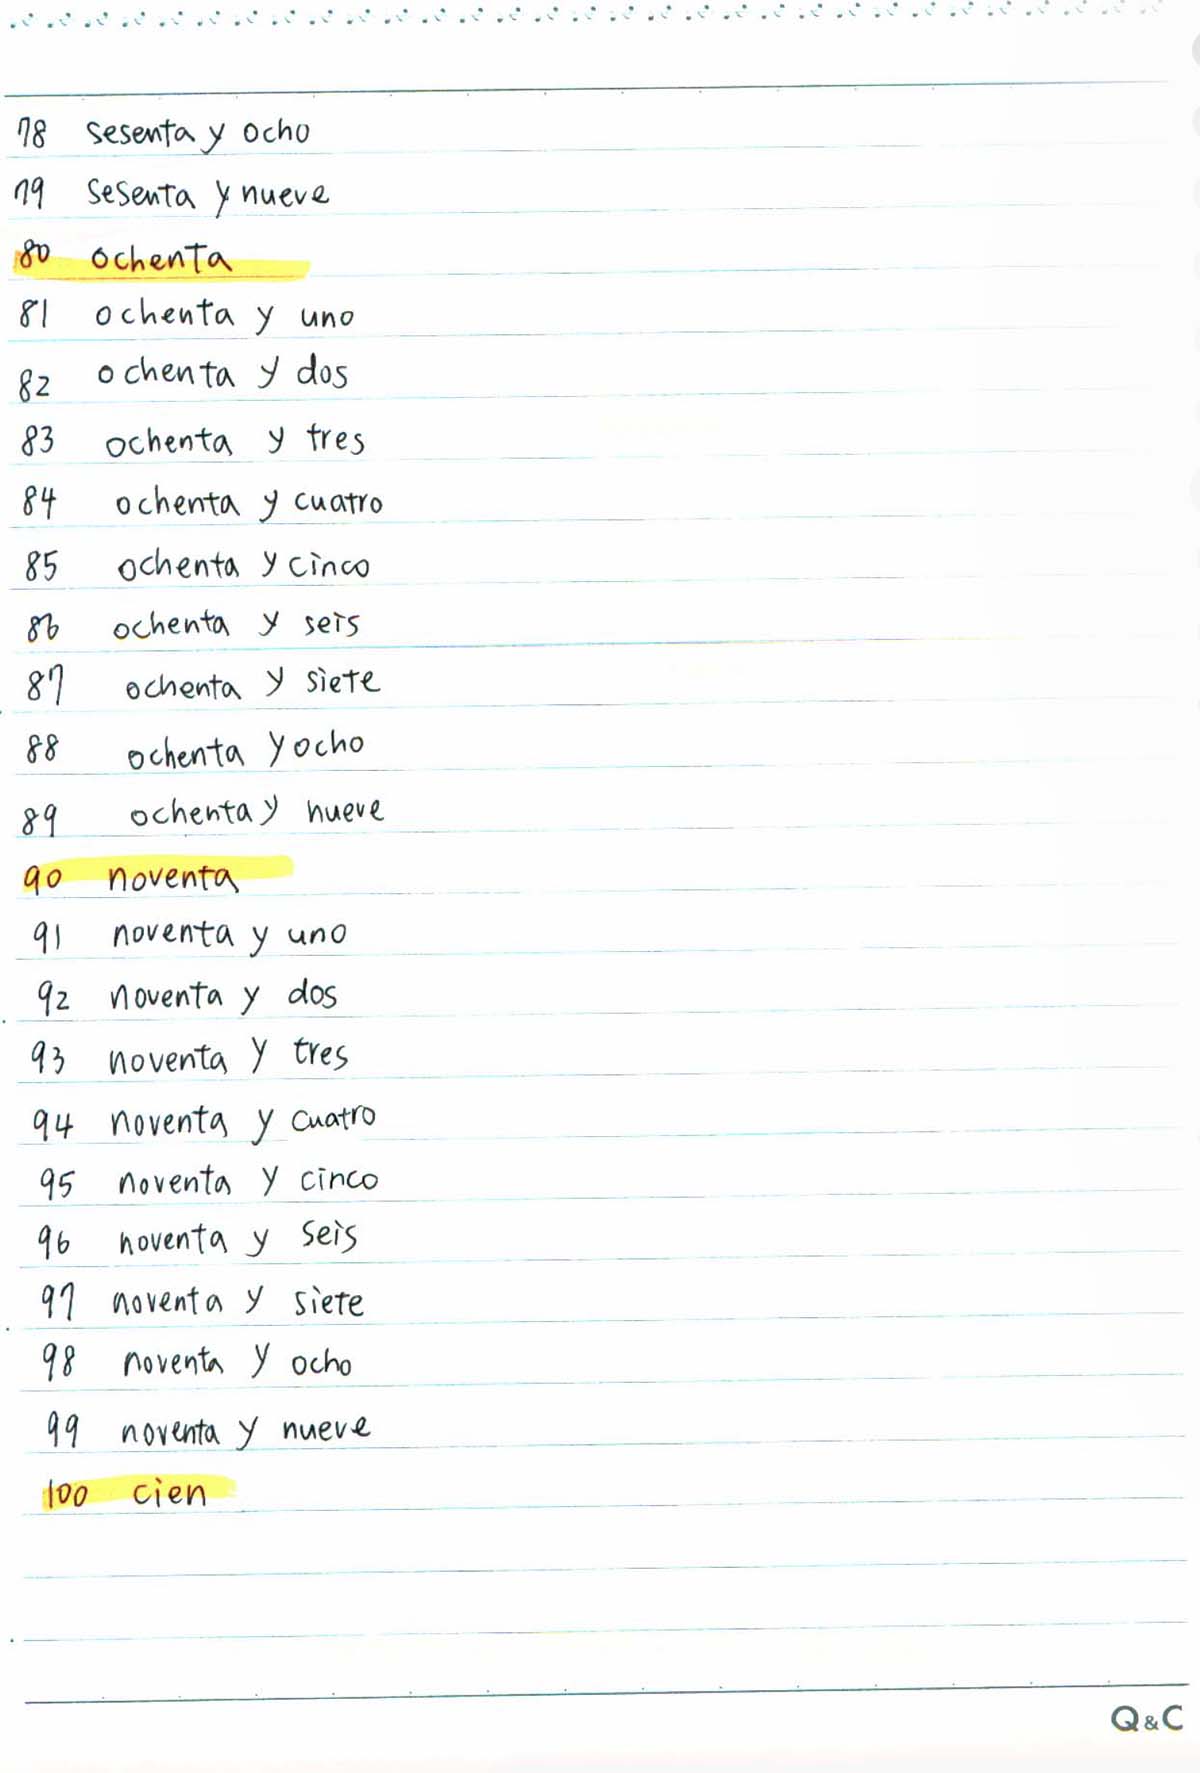 78 sesenta y ocho
79 sesenta y nueve
80 ochenta
81 ochenta y uno
82 ochenta y dos
83 ochenta y tres
84 ochenta y cuatro
85 ochenta y cinco
86 ochenta y seis
87 ochenta y siete
88 ochenta y ocho
89 ochenta y nueve
90 noventa
91 noventa y uno
92 noventa y dos
93 noventa y tres
94 noventa y cuatro
95 noventa y cinco
96 noventa y seis
97 noventa y siete
98 noventa y ocho
99 noventa y nueve
100 cien
Q&C